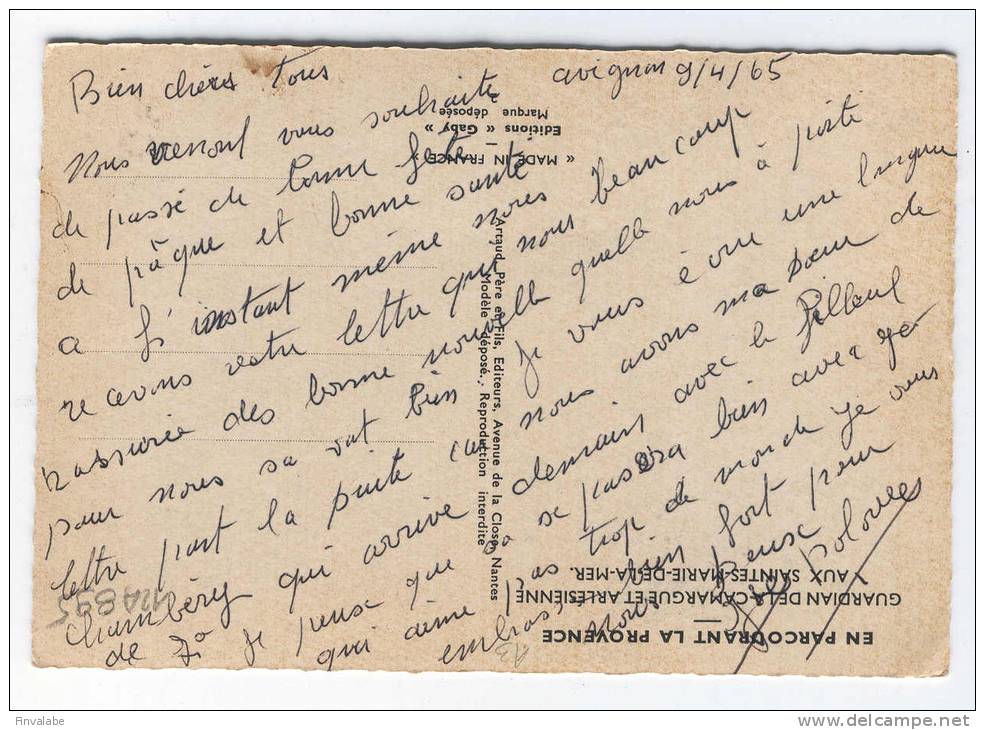 avignon 9/4/65
Bien chères tous
Nous venont vous souhaite
de passé de bonne fete
de pâque et bonne santé
a l'instant même nores
recevons votre lettre qui nous beaucoup
rassurée des bonne nouvelle quelle nous à porté
pour nous sa vat bien je vous écrire une longue
lettre part la suite car nous avons ma soeur de
Chambéry qui arrive demain avec le filleul
de je pense que sa se passera bien avec
qui aime pas trop de monde je vous
embrasse bien fort pour
nous deux
« MADE IN FRANCE »
Editions « Gaby »
Marque déposée
Artaud Père et Fils, Editeurs, Avenue de la Close, Nantes
Modèle déposé. Reproduction interdite
EN PARCOURANT LA PROVENCE
GUARDIAN DE LA CAMARGUE ET ARLÉSIENNE
AUX SAINTES-MARIE-DE-LA-MER.
Fnvalabe
www.delcampe.net